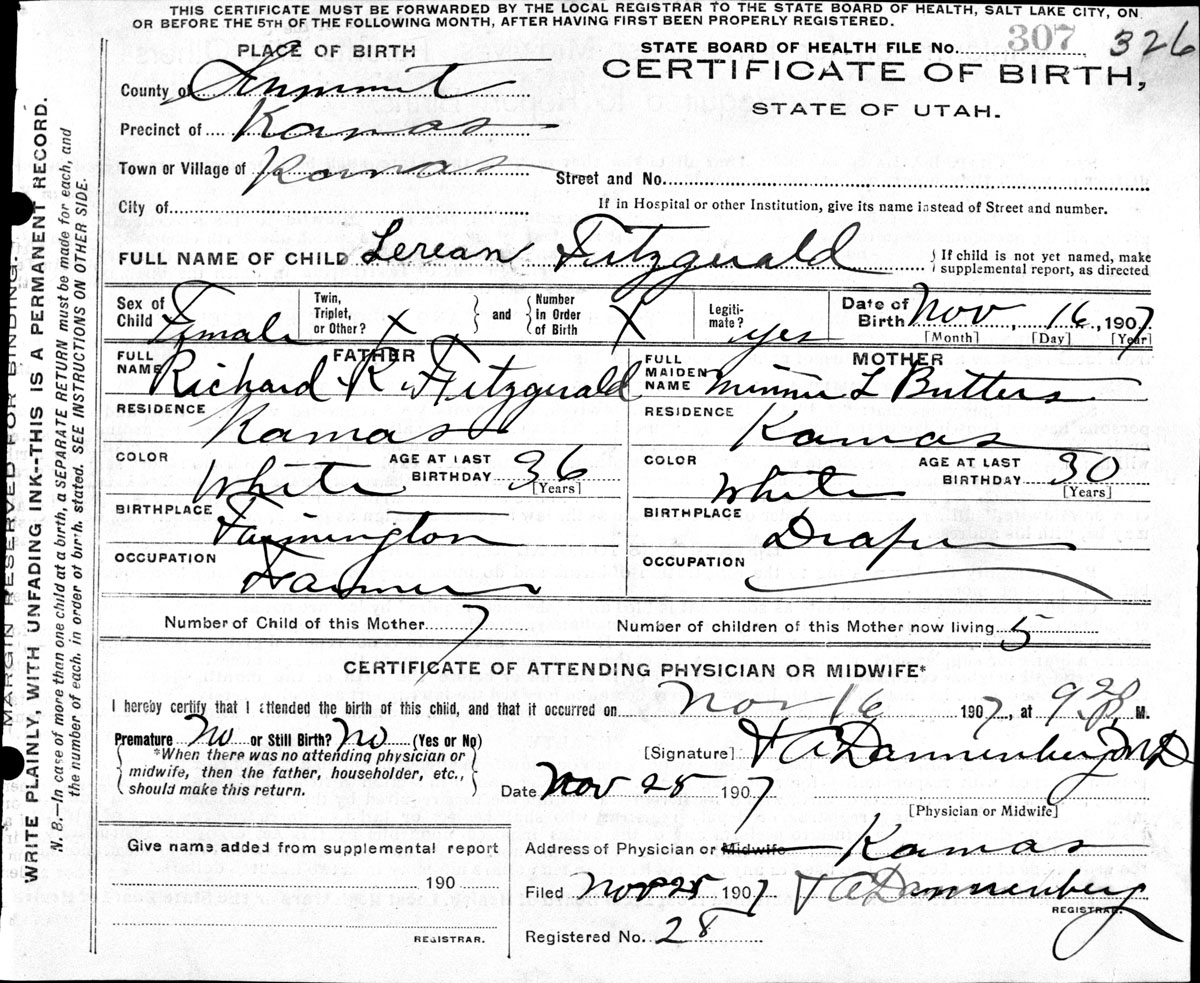 THIS CERTIFICATE MUST BE FORWARDED BY THE LOCAL REGISTRAR TO THE STATE BOARD OF HEALTH, SALT LAKE CITY, ON
OR BEFORE THE 5TH OF THE FOLLOWING MONTH, AFTER HAVING FIRST BEEN PROPERLY REGISTERED.
PLACE OF BIRTH
STATE BOARD OF HEALTH FILE No. 307 326
CERTIFICATE OF BIRTH,
STATE OF UTAH.
County of Summit
Precinct of Kamas
Town or Village of Kamas
Street and No.
City of
If in Hospital or other Institution, give its name instead of Street and number.
FULL NAME OF CHILD Lerean Fitzgerald
{ If child is not yet named, make supplemental report, as directed
Sex of Child Female Twin, Triplet, or Other? X } and { Number in Order of Birth X Legitimate? yes Date of Birth Nov, 16, 1907
[Month] [Day] [Year]
FATHER
FULL NAME Richard R Fitzgerald
RESIDENCE Kamas
COLOR White AGE AT LAST BIRTHDAY 36
[Years]
BIRTHPLACE Farmington
OCCUPATION Farmer
MOTHER
FULL MAIDEN NAME Minnie L Butters
RESIDENCE Kamas
COLOR White AGE AT LAST BIRTHDAY 30
[Years]
BIRTHPLACE Draper
OCCUPATION
Number of Child of this Mother 7 Number of children of this Mother now living 5
CERTIFICATE OF ATTENDING PHYSICIAN OR MIDWIFE*
I hereby certify that I attended the birth of this child, and that it occurred on Nov 16 1907, at 9 20 P. M.
Premature No or Still Birth? No (Yes or No)
{ *When there was no attending physician or midwife, then the father, householder, etc., should make this return. }
[Signature] H A Dannenberg MD
Date Nov 25 1907
[Physician or Midwife]
Give name added from supplemental report
190
REGISTRAR.
Address of Physician or Midwife Kamas
Filed Nov 25 1907 H A Dannenberg
REGISTRAR.
Registered No. 28
MARGIN RESERVED FOR BINDING.
WRITE PLAINLY, WITH UNFADING INK--THIS IS A PERMANENT RECORD.
N. B.—In case of more than one child at a birth, a SEPARATE RETURN must be made for each, and
the number of each, in order of birth, stated. SEE INSTRUCTIONS ON OTHER SIDE.